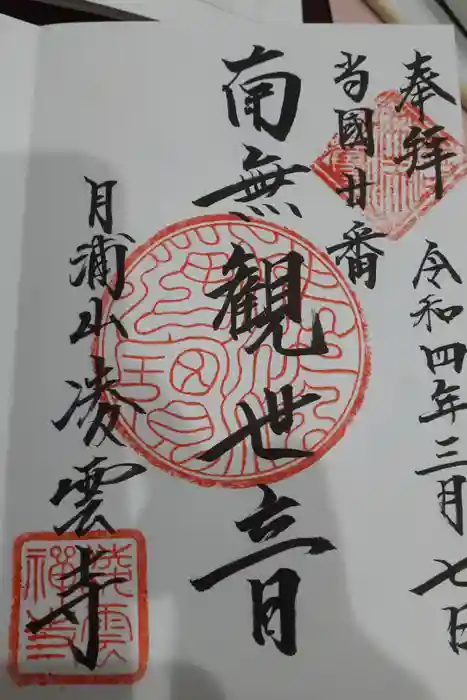 奉拝
令和四年三月七日
当國廿番
南無観世音
月浦山凌雲寺